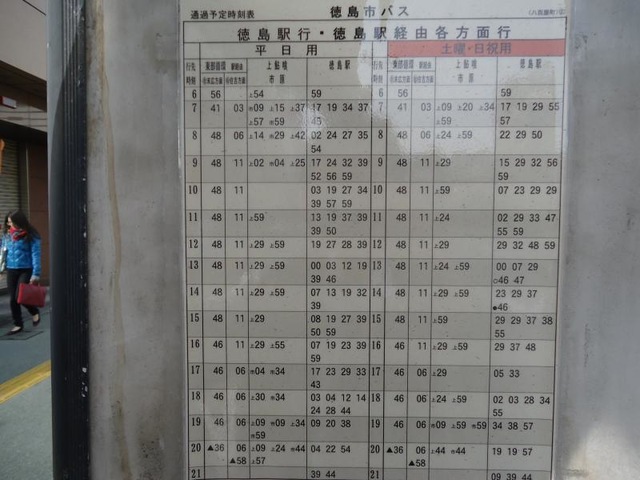 通過予定時刻表 徳島市バス
徳島駅行・徳島駅経由各方面行
平日用 土曜・日祝用
行先 東部循環 駅経由 上鮎喰 徳島駅 行先 東部循環 駅経由 上鮎喰 徳島駅
時刻 市原 時刻 市原
6 56 上54 59 6 56 59
7 41 03 市09 上15 上37 17 19 34 37 7 41 03 上09 上20 上34 17 19 29 55
上57 市59 45 57
8 48 06 上14 市29 上42 02 24 27 35 8 48 06 上24 上59 22 29 50
54
9 48 11 上02 市04 上25 17 24 32 39 9 48 11 上29 15 29 32 56
52 56 59 59
10 48 11 03 19 27 34 10 48 11 上59 07 23 29 29
39 57 59
11 48 11 上59 13 19 37 39 11 48 11 上24 02 29 33 47
39 50 55 59
12 48 11 上29 上59 19 27 28 39 12 48 11 上29 29 32 48 59
13 48 11 上29 上59 00 03 12 19 13 48 11 上24 上59 00 07 29
39 46 ○46 47
14 48 11 上29 上59 07 13 19 32 14 48 11 上29 上59 23 29 37
39 ●46
15 48 11 上29 08 19 27 39 15 48 11 上59 29 29 37 38
50 59 55
16 46 11 上29 上55 07 19 23 39 16 46 11 上29 上59 29 37 48
59
17 46 06 市04 市34 17 23 29 33 17 46 06 市34 05 33
43
18 46 06 上30 市34 03 04 12 14 18 46 06 上24 上59 02 03 28 34
24 28 44 55
19 46 06 上09 市09 上34 09 20 38 19 46 06 市09 上59 市59 34 38 57
市59
20 ▲36 06 上09 上24 市44 04 22 54 20 ▲36 06 上44 市44 19 19 57
▲58 上57 ▲58
21 39 44 21 09 39 44